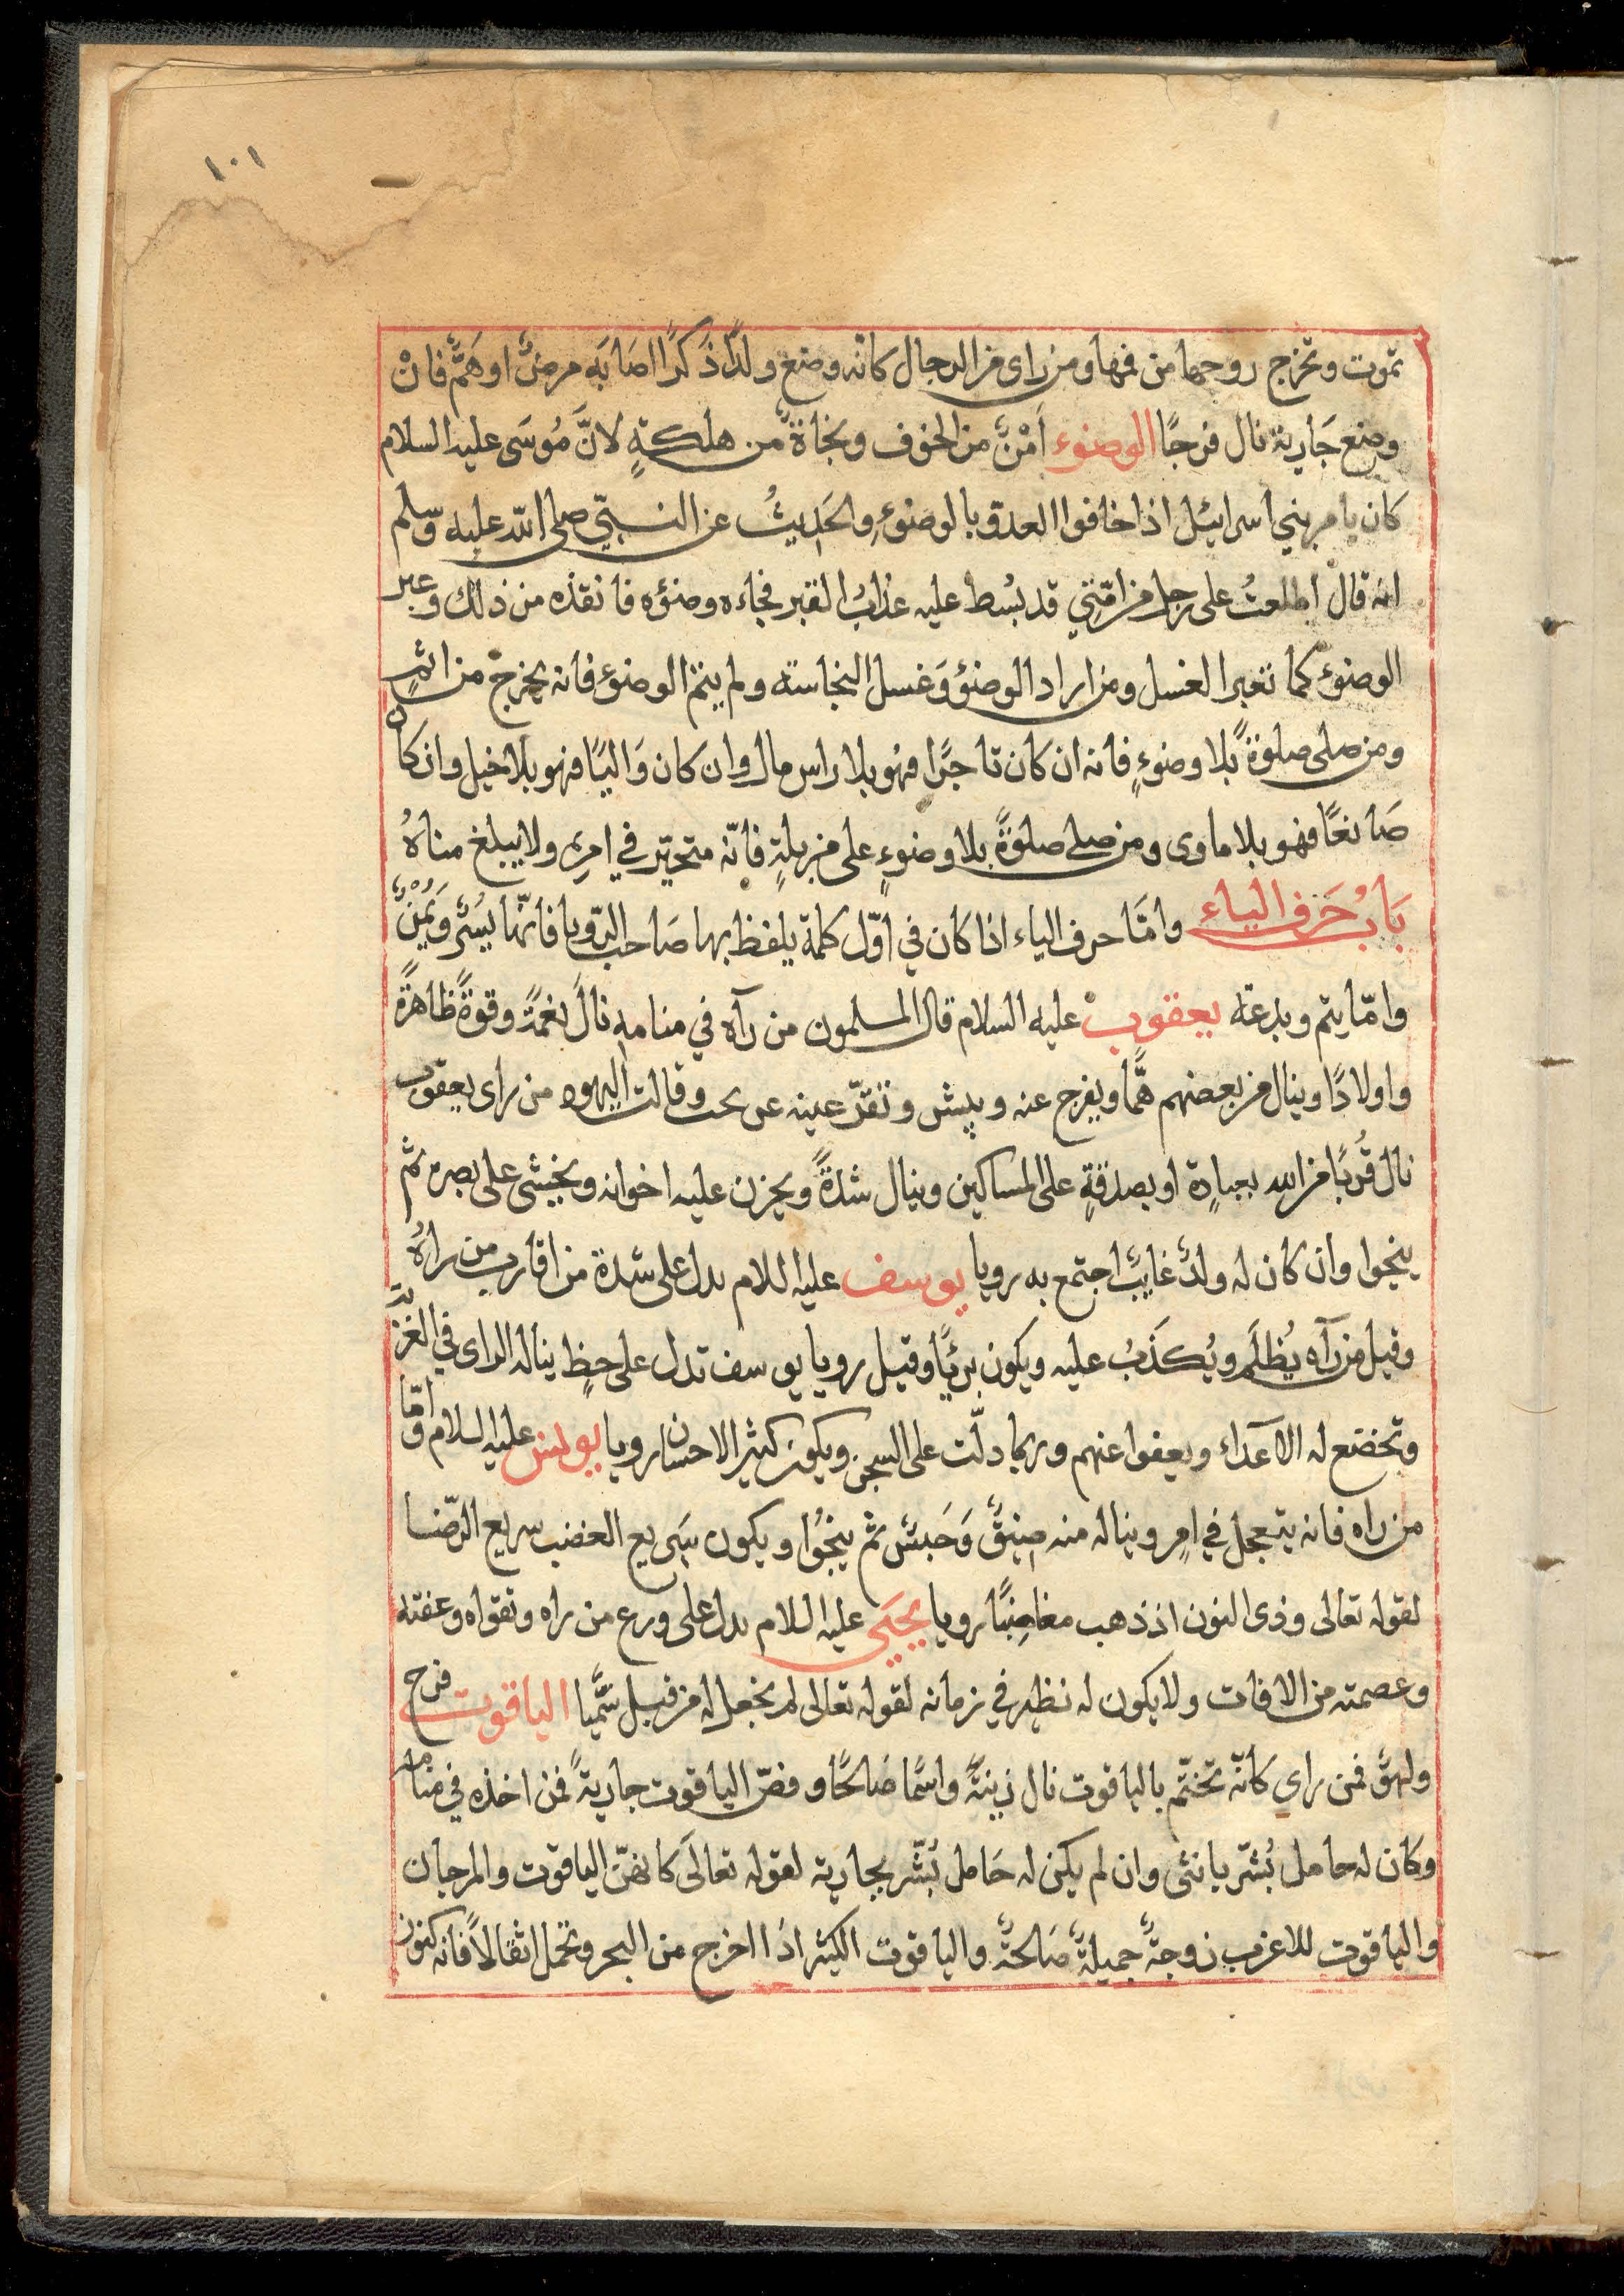 ١٠١
تموت وتخرج روحها من فمها ومن راى من الرجال كانه وضع ولدًا ذكرًا اصابه مرضٌ او همٌّ فانْ
وضع جَارية نال فرجًا الوضوء اَمْنٌ من الخوف ونجاةٌ من هلكةٍ لانَّ مُوسَى عليه السلام
كان يامر بني اسرائيل اذا خافوا العدو بالوضوءِ والحَديثُ عن النبيّ صلى الله عليه وسلم
انه قال اطلعتُ على رجل من امّتي قد بُسط عليه عذابُ القبر فجاءه وضؤه فانقذه من ذلك وعبر
الوضوء كما تعبر الغسل ومن اراد الوضؤ وَغسل النجاسته ولم يتم الوضوء فانه يخرج من اثمٍ
ومن صلى صلوةً بلا وضوءٍ فانه ان كان تاجرًا فهُو بلا راس مال وان كان وَاليًا فهو بلا خيل وان كان
صَانعًا فهو بلا ماوى ومن صلى صلوةً بلا وضوءٍ على مزبلةٍ فانّه متحيّر في امرِه ولا يبلغ مناهُ
بَابُ حَرف الياء وامَّا حرف الياء اذا كان في اوّل كلمة يلفظ بها صَاحب الرّويا فانّها يُسْرٌ وَيُمْنٌ
وامّا يتم وبدعة يعقوب عليه السلام قال المسلمون من رآه في منامه نال نعمةً وقوةً ظاهرةً
واولادًا وينال من بعضهم همًّا ويفرج عنه ويبش وتقرّ عينه وقالت اليهود من راى يعقوب
نال قُربًا من الله بعبادة او بصدقةٍ على المساكين وينال شدةً ويحزن عليه اخوانه ويخشى على بصره ثم
ينجوا وان كان له ولدٌ غايبٌ اجتمع به رويا يوسف عليه اللام يدل على شدة من اقارب من راهُ
وقيل من رآه يُظلَم ويُكذبُ عليه ويكون بريًا وقيل رويا يوسف تدل على حظٍ يناله الراى في الغربة
وتخضع له الاعداء ويعفوا عنهم وربما دلّت على السجن ويكون كثير الاحسان رويا يونس عليه السلام وامّا
من راه فانه يتعجل في امرٍ ويناله منه ضيقٌ وَحَبسٌ ثم ينجُوا ويكون سَريع الغضب سريع الرّضا
لقوله تعالى وذى النون اذ ذهب مغاضِبًا رويا يحيَى عليه اللام يدل على ورع من راه وتقواه وعفته
وعصمته من الافات ولا يكون له نظير في زمانه لقوله تعالى لم نجعل له من قبل سَميًّا الياقوت فرح
ولهوٌ فمن راي كانّه تختّم بالياقوت نال زينةً واسمًا صَالحًا وفصّ الياقوت جاريةً فمن اخذه في منامه
وكان له حامل بُشّر بانثى وان لم يكن له حَامل بُشّر بجارية لقوله تعالى كانهنّ الياقوت والمرجان
والياقوت للاعزب زوجةٌ جميلةٌ صَالحةٌ والياقوت الكثير اذَا اخرج من البحر وتحمل اثقالاً فانه كنوز